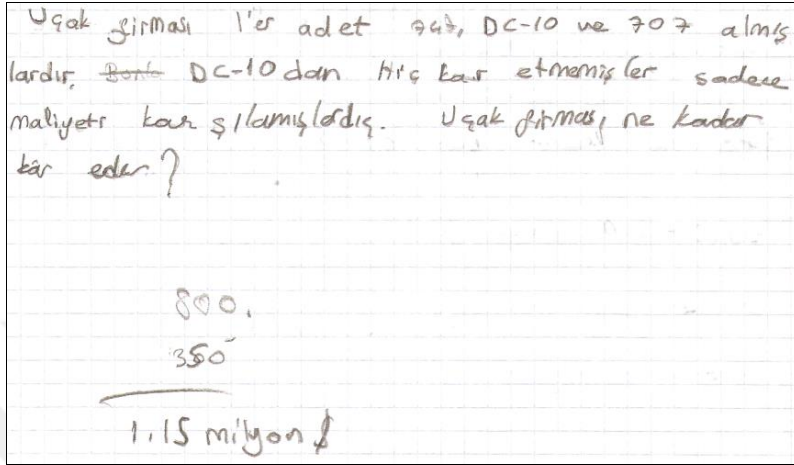 Uçak firması 1'er adet 747, DC-10 ve 707 almış
lardır. DC-10 dan hiç kar etmemişler sadece
maliyeti karşılamışlardır. Uçak firması ne kadar
kâr eder?
800.
350
1.15 milyon $